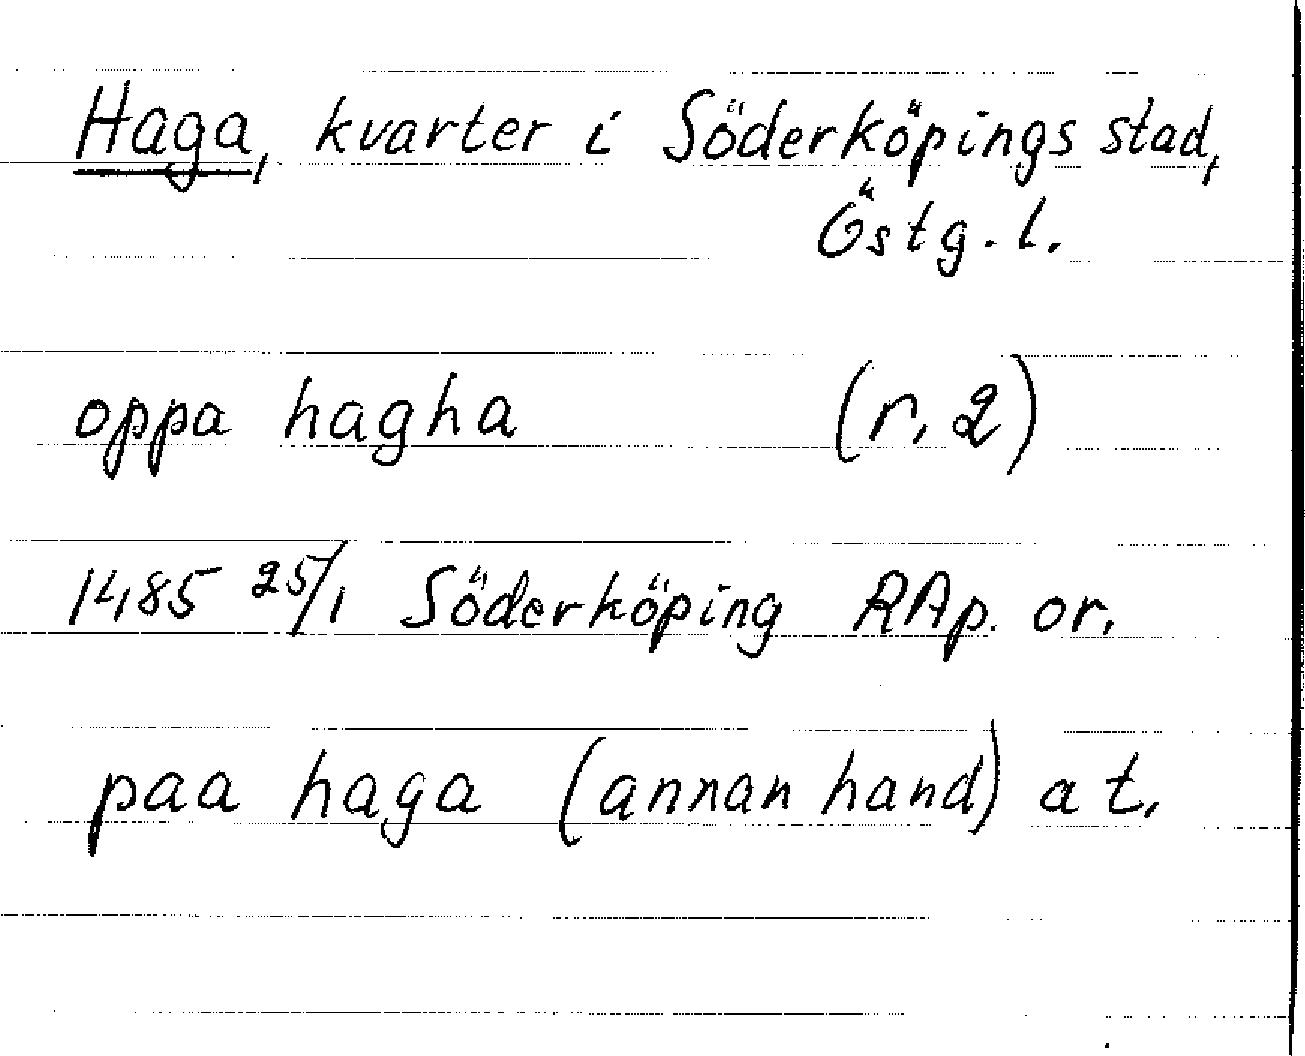 Haga, kvarter i Söderköpings stad,
Östg. l.
oppa hagha (r. 2)
1485 25/1 Söderköping RAp. or.
paa haga (annan hand) at.